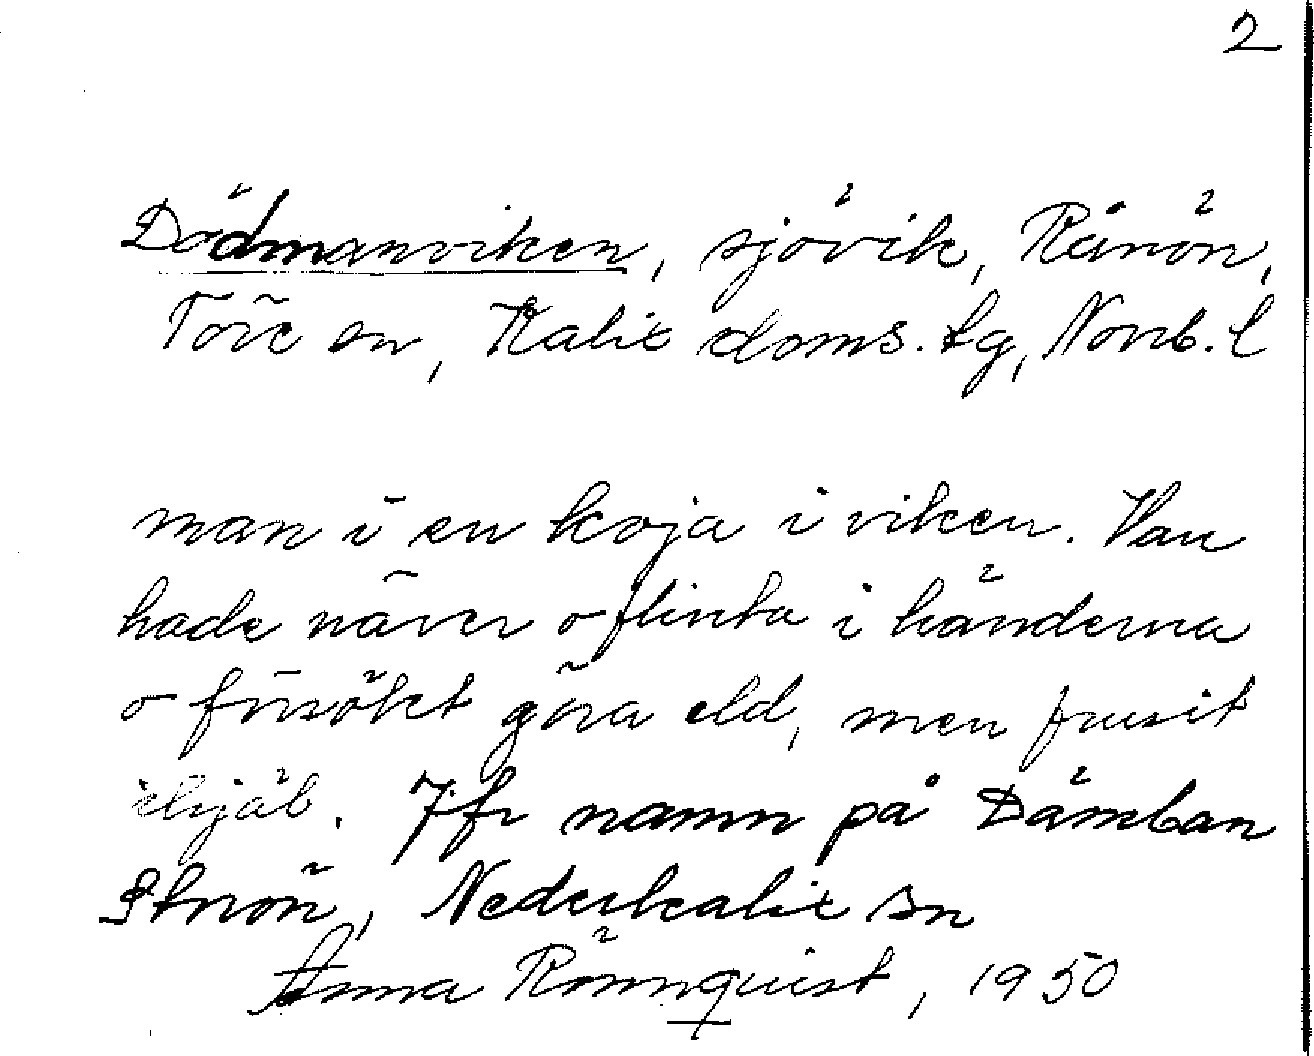 2
Dödmanviken, sjövik, Rånön,
Töre sn, Kalix doms. tg, Norrb. l
man i en koja i viken. Han
hade näver o flinta i händerna
o försökt göra eld, men frusit
ihjäl. Jfr namn på Dämban
Storön, Nederkalix sn
Anna Rönnquist, 1950